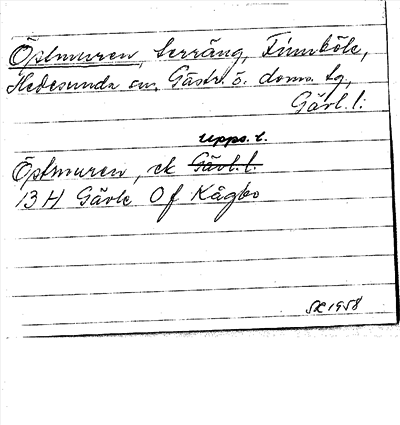 Östmuren, terräng, Finnböle,
Hedesunda sn, Gästr. ö. doms. tg,
Gävl. l.
Upps. l.
Östmuren, ek Gävl. l.
13 H Gävle 0 f Kågbo
SR 1958